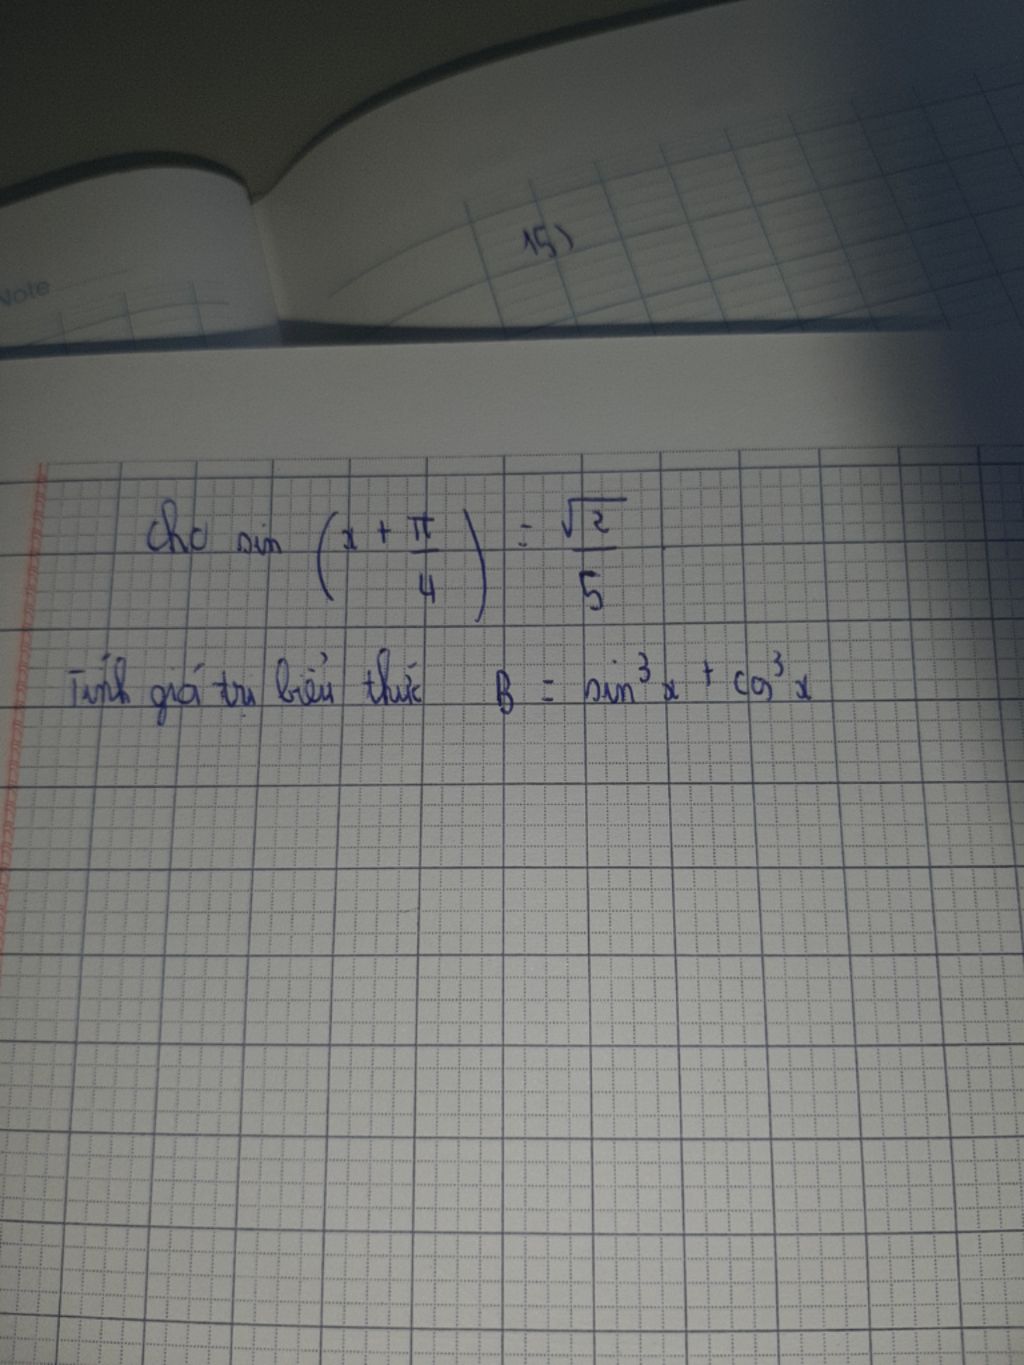 Note
15)
Cho sin (x + π/4) = √2/5
Tính giá trị biểu thức B = sin³x + cos³x